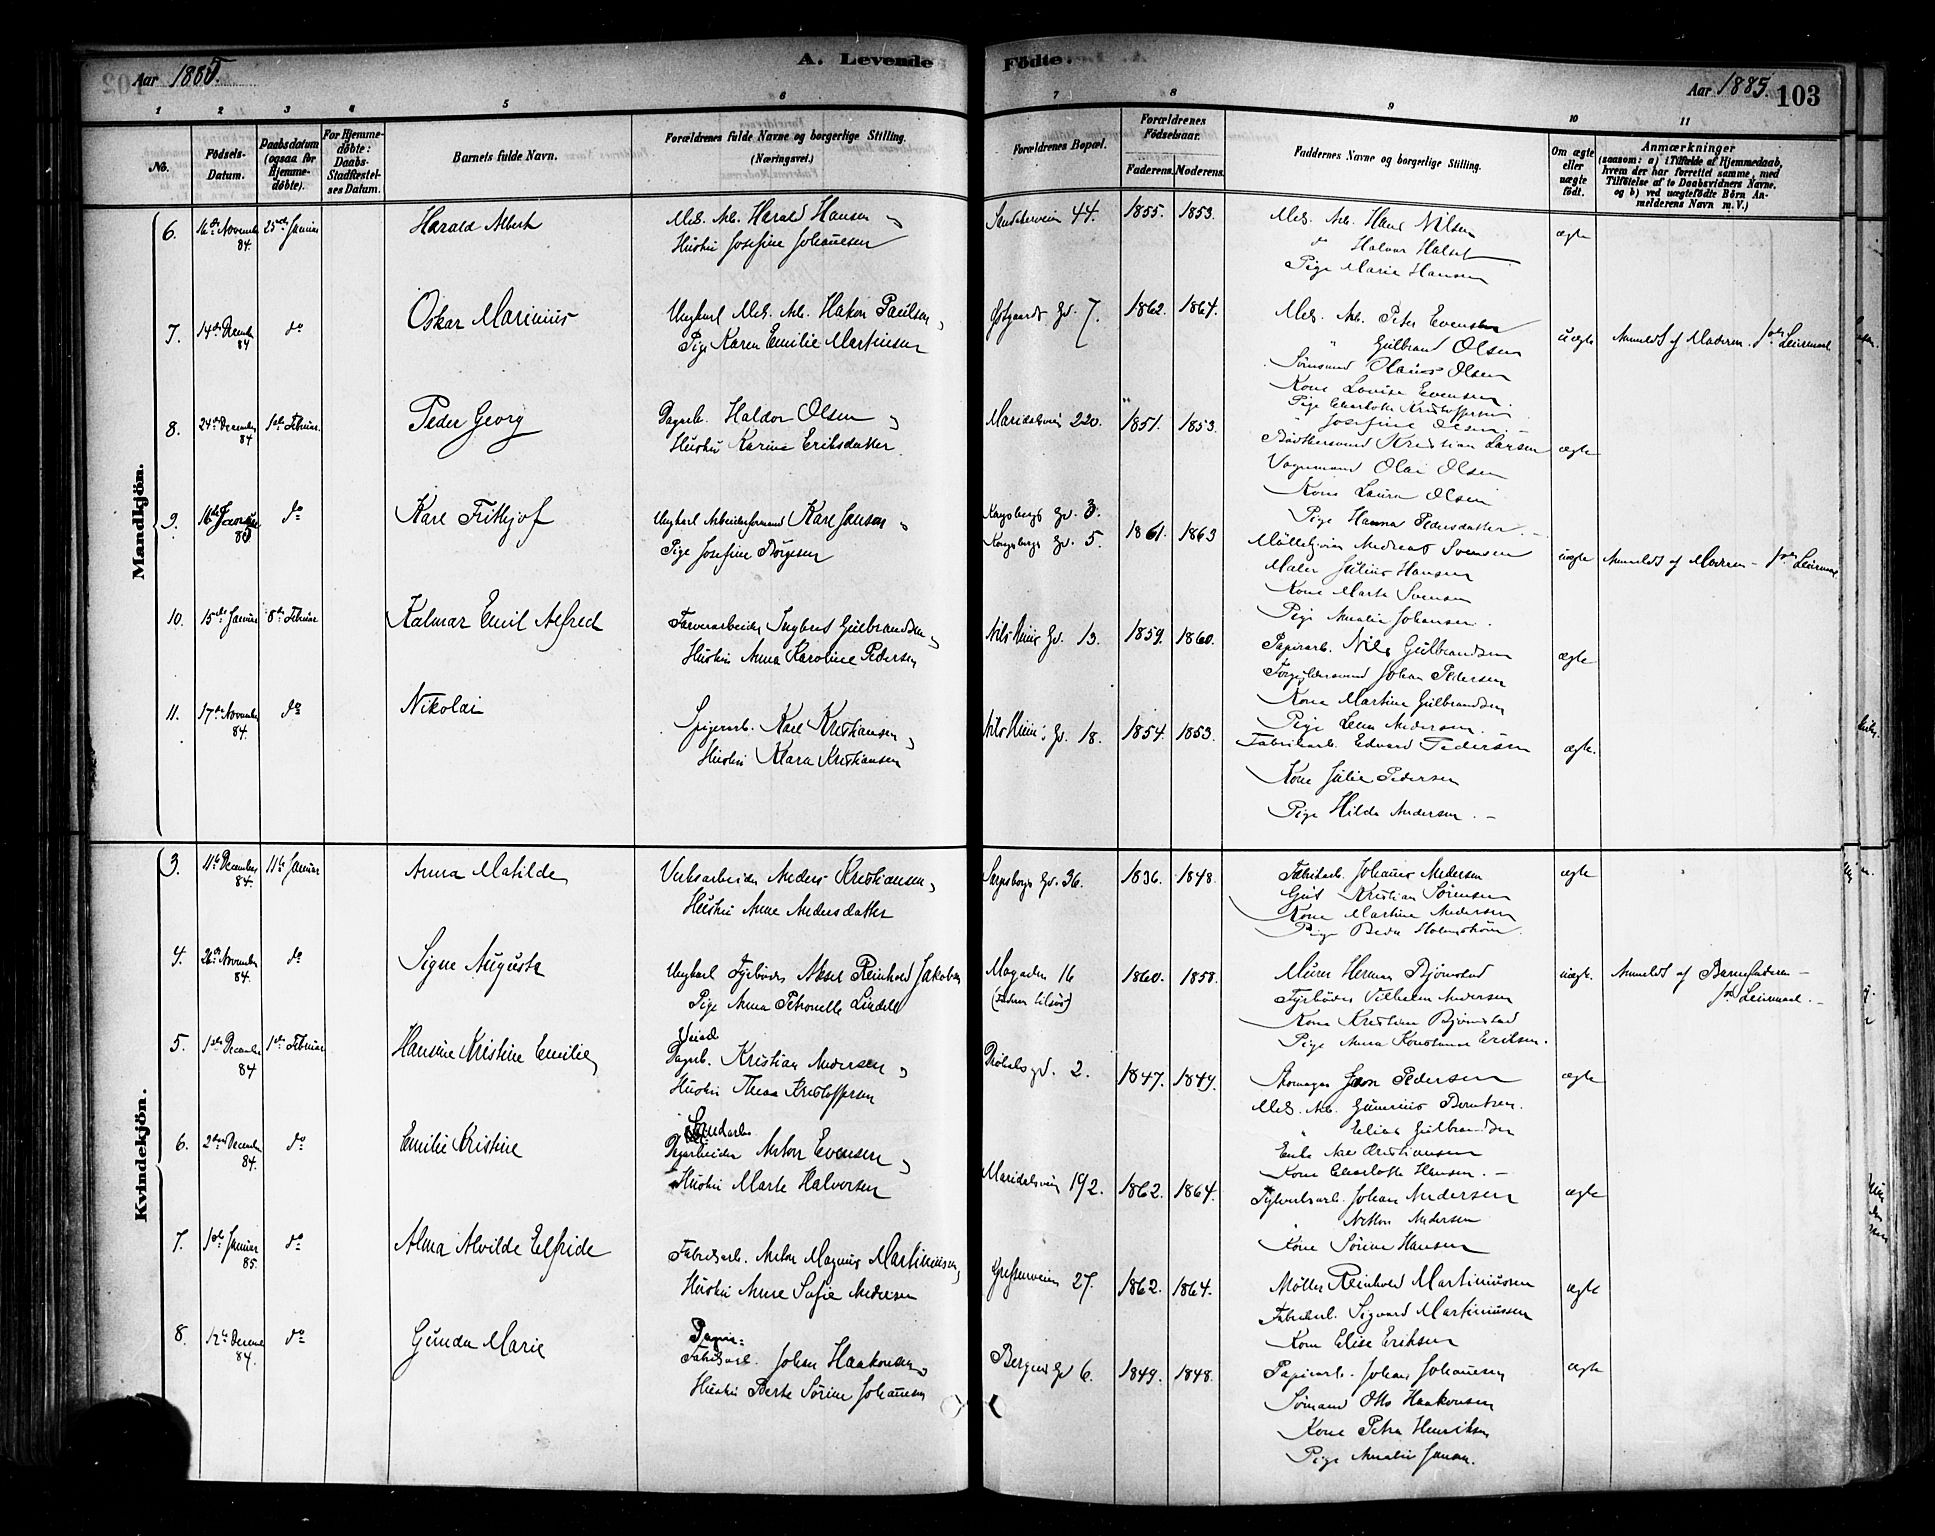 Aar 1885.
A. Levende Fødte.
Aar 1885. 103
1 2 3 4 5 6 7 8 9 10 11
No.
Fødsels-Datum.
Daabsdatum (ogsaa for Hjemmedøbte).
For Hjemmedøbte: Daabs-Stadfæstelses Datum.
Barnets fulde Navn.
Forældrenes fulde Navne og borgerlige Stilling.
(Næringsvei.)
Forældrenes Bopæl.
Forældrenes Fødselsaar.
Faderens. Moderens.
Faddernes Navne og borgerlige Stilling.
Om ægte eller uægte født.
Anmærkninger
(saasom: a) i Tilfælde af Hjemmedaab,
hvem der har forrettet samme, med
Tilføielse af to Daabsvidners Navne.
og b) ved uægtefødte Børn Anmelderens Navn m. V.)
Mandkjön.
6. 16de Novembr 84. 25de Januar Harald Albert
Mek. Arb. Harald Hansen
Hustru Josefine Johansen
44. 1855. 1853.
Mek. Arb. Hans Nilsen
do Halvor Halset
Pige Maria Hansen
ægte
7. 14de Decembr 84 do Oskar Marinius
Ungkarl Mek. Arb. Hakon Paulson
Pige Karen Emilie Martinsen
Østgaards Gd. 7. 1862. 1864.
Mek. Arb. Peter Evensen
" Gulbrand Olsen
Sømand Olaus Olsen
Kone Lovise Evensen
Pige Charlotte Kristoffersen
" Josefine Olsen
uægte Anmeldt af Moderen. for Leiermaal
8. 24de Decembr 84 1ste Februar. Peder Georg
Dagarb. Haldor Olsen
Hustru Karine Eriksdatter
Maridalsvein 220. 1851. 1853.
Bødkersvend Kristian Larsen
Vognmand Olai Olsen
Kone Laura Olsen
Pige Hanna Pedersdatter
ægte
9. 16de Januar 85 do Karl Frithjof
Ungkarl Arbeidsformand Karl Jansen
Pige Josefine Børgesen
Kongsbergs Gd. 3.
Kongsbergs Gd. 5. 1861. 1863
Andreas Svensen
Maler Julius Hansen
Kone Marte Svensen
Pige Amalie Johansen
uægte Anmeldt af Moderen – for Leiermaal
10. 15de Januar 8de Februar Kalmar Emil Alfred
Farverarbeider Ingbret Gulbrandsen
Hustru Anna Karoline Pedersen
Nils Huus Gd. 13. 1859. 1860.
Papirarb. Nils Gulbrandsen
Johan Pedersen
Kone Martine Gulbrandsen
Pige Lena Andersen
ægte
11. 17de Novembr 84. do Nikolai
Spigerarb. Karl Kristiansen
Hustru Klara Kristiansen
Nils Huus Gd. 18. 1854. 1853.
Fabrikarb. Edvard Pedersen
Kone Julie Pedersen
Pige Hilda Andersen
ægte.
Kvindekjön.
3. 11te Decembr 84. 11te Januar Anna Matilde
Verksarbeider Anders Kristiansen
Hustru Anne Andersdatter
Sarpsborgs Gd. 36. 1836. 1848.
Fabrikarb. Johannes Andersen
Gut Kristian Sørensen
Kone Martine Andersen
Pige Beda Holmstrøm
ægte
4. 26de Novembr 84. do Signe Augusta
Ungkarl Fyrbøder Aksel Reinhold Jakobsen
Pige Anna Petronelle Lindell
16 1860. 1858.
Murer Herman Bjørnstad
Fyrbøder Vilhelm Andersen
Kone Kristine Bjørnstad
Pige Anna Konstanse Eriksen.
uægte. Anmeldt af Barnefaderen –
for Leiermaal. –
5. 1ste Decembr 84 1ste Februar Hansine Kristine Emilie
Dagarb. Kristian Andersen
Hustru Thea Kristoffersen
Drøbaksgd. 2. 1847. 1849.
Skomager Jon Pedersen
Mek. Arb. Gunerius Berntsen.
" Elias Gulbrandsen
Enke Kristiansen
Kone Charlotte Hansen. –
ægte
6. 2den Decembr 84. do Emilie Kristine
Dagarbeider Anton Evensen
Hustru Marte Halvorsen
Maridalsvein 192. 1862. 1864.
Johan Andersen
Anton Andersen
Kone Sørine Hansen
ægte
7. 1ste Januar 85. do Alma Alvilde Elfride
Fabrikarb. Anton Magnus Martinusen
Hustru Anne Sofie Andersen
Grefsenveien 27. 1862. 1864.
Møller Reinhold Martiniussen
Fabrikarb. Sigvard Martiniussen
Kone Elise Eriksen
ægte
8. 12te Decembr 84. do Gunda Marie
Papir:
Fabrikarb. Johan Haakonsen
Hustru Berte Sørine Johansen
Bergens Gd 6. 1849. 1848.
Papirarb. Johan Johansen
Sømand Otto Haakonsen
Kone Petra Henriksen
Pige Amalie Jansen.
ægte